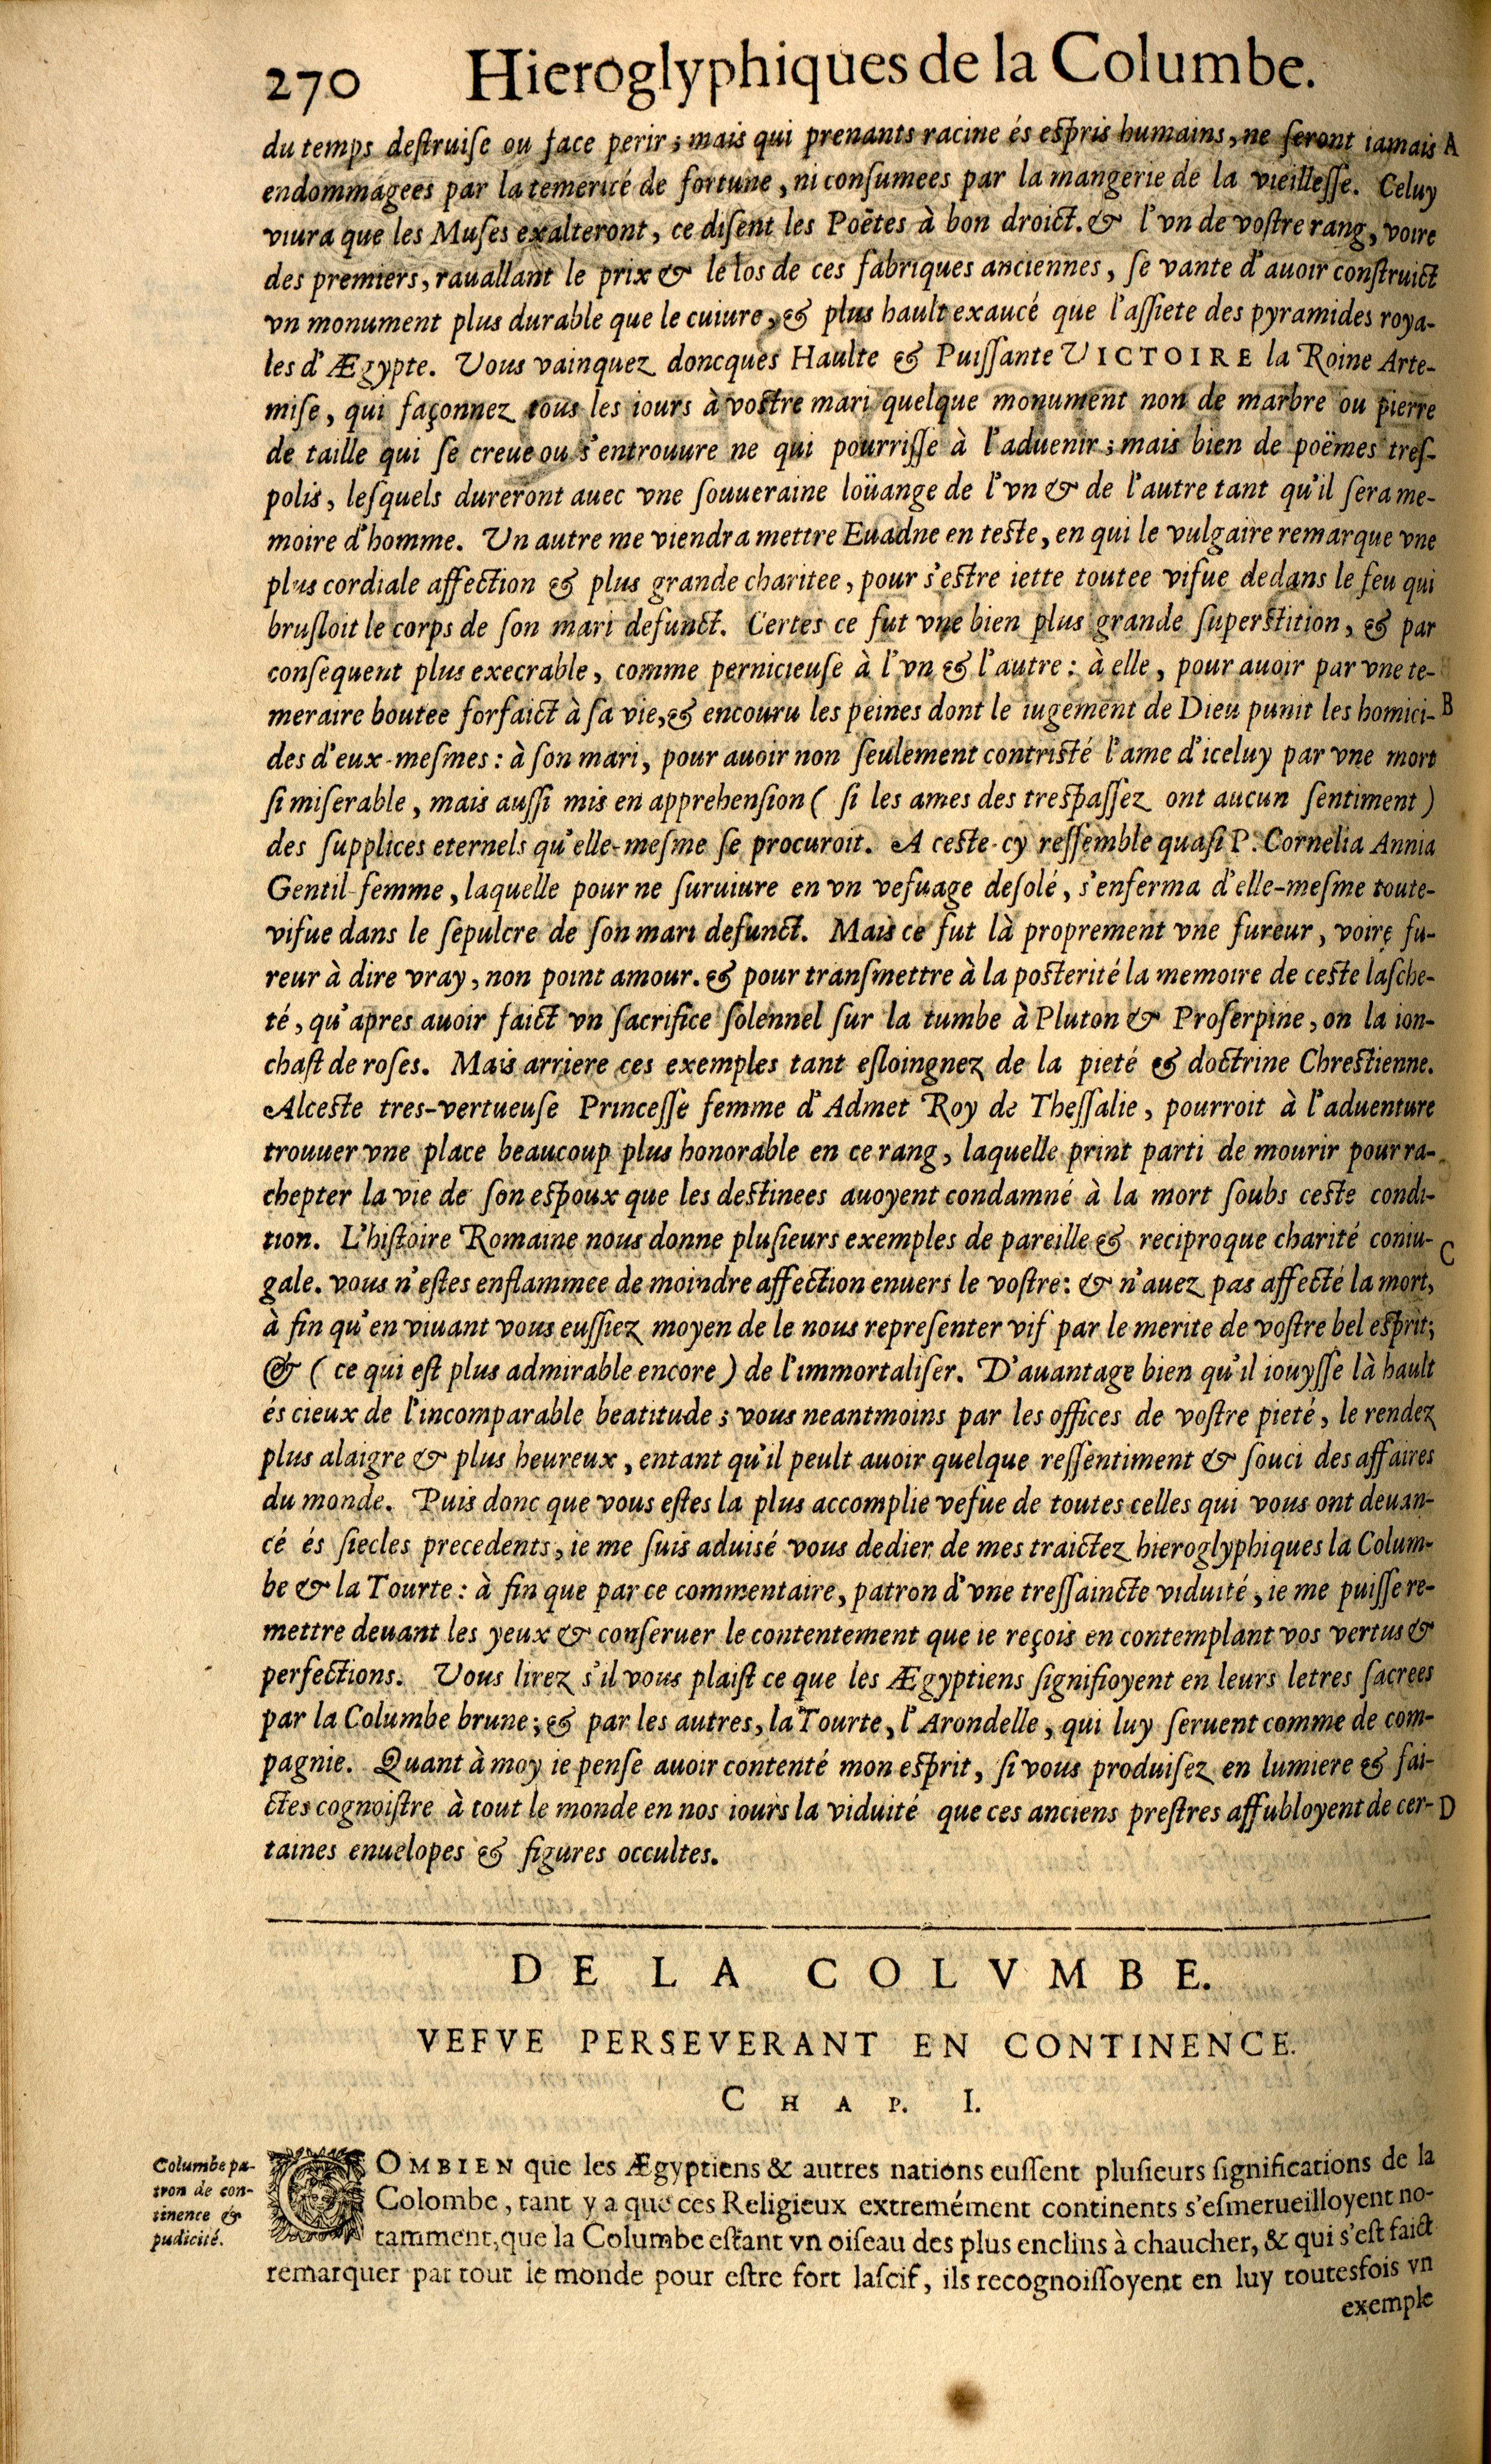 270 Hieroglyphiques de la Columbe.
du temps destruiſe ou face perir; mais qui prenants racine és eſpris humains, ne ſeront iamais A
endommagees par la temerité de fortune, ni conſumees par la mangerie de la vieilleſſe. Celuy
viura que les Muſes exalteront, ce diſent les Poëtes à bon droict. & l'vn de voſtre rang, voire
des premiers, rauallant le prix & le los de ces fabriques anciennes, ſe vante d'auoir conſtruict
vn monument plus durable que le cuiure, & plus hault exaucé que l'aſſiete des pyramides roya-
les d'Ægypte. Vous vainquez doncques Haulte & Puiſſante VICTOIRE la Roine Arte-
miſe, qui façonnez tous les iours à voſtre mari quelque monument non de marbre ou pierre
de taille qui ſe creue ou s'entrouure ne qui pourriſſe à l'aduenir; mais bien de poëmes treſ-
polis, leſquels dureront auec vne ſouueraine loüange de l'vn & de l'autre tant qu'il ſera me-
moire d'homme. Un autre me viendra mettre Euadne en teſte, en qui le vulgaire remarque vne
plus cordiale affection & plus grande charitee, pour s'eſtre iette toutee vifue dedans le feu qui
bruſloit le corps de ſon mari defunct. Certes ce fut vne bien plus grande ſuperſtition, & par
conſequent plus execrable, comme pernicieuſe à l'vn & l'autre: à elle, pour auoir par vne te-
meraire boutee forfaict à ſa vie, & encouru les peines dont le iugement de Dieu punit les homici- B
des d'eux-meſmes: à ſon mari, pour auoir non ſeulement contriſté l'ame d'iceluy par vne mort
ſi miſerable, mais auſſi mis en apprehenſion (ſi les ames des treſpaſſez ont aucun ſentiment)
des ſupplices eternels qu'elle-meſme ſe procuroit. A ceſte-cy reſſemble quaſi P. Cornelia Annia
Gentil-femme, laquelle pour ne ſuruiure en vn vefuage deſolé, s'enferma d'elle-meſme toute-
vifue dans le ſepulcre de ſon mari defunct. Mais ce fut là proprement vne fureur, voire fu-
reur à dire vray, non point amour. & pour tranſmettre à la poſterité la memoire de ceſte laſche-
té, qu'apres auoir faict vn ſacrifice ſolennel ſur la tumbe à Pluton & Proſerpine, on la ion-
chaſt de roſes. Mais arriere ces exemples tant eſloingnez de la pieté & doctrine Chreſtienne.
Alceſte tres-vertueuſe Princeſſe femme d'Admet Roy de Theſſalie, pourroit à l'aduenture
trouuer vne place beaucoup plus honorable en ce rang, laquelle print parti de mourir pour ra-
chepter la vie de ſon eſpoux que les deſtinees auoyent condamné à la mort ſoubs ceſte condi-
tion. L'hiſtoire Romaine nous donne pluſieurs exemples de pareille & reciproque charité coniu- C
gale. vous n'eſtes enflammee de moindre affection enuers le voſtre: & n'auez pas affecté la mort,
à fin qu'en viuant vous euſſiez moyen de le nous repreſenter vif par le merite de voſtre bel eſprit;
& (ce qui eſt plus admirable encore) de l'immortaliſer. D'auantage bien qu'il iouyſſe là hault
és cieux de l'incomparable beatitude; vous neantmoins par les offices de voſtre pieté, le rendez
plus alaigre & plus heureux, entant qu'il peult auoir quelque reſſentiment & ſouci des affaires
du monde. Puis donc que vous eſtes la plus accomplie vefue de toutes celles qui vous ont deuan-
cé és ſiecles precedents, ie me ſuis aduisé vous dedier de mes traictez hieroglyphiques la Colum-
be & la Tourte: à fin que par ce commentaire, patron d'vne treſſaincte viduité, ie me puiſſe re-
mettre deuant les yeux & conſeruer le contentement que ie reçois en contemplant vos vertus &
perfections. Vous lirez s'il vous plaiſt ce que les Ægyptiens ſignifioyent en leurs letres ſacrees
par la Columbe brune; & par les autres, la Tourte, l'Arondelle, qui luy ſeruent comme de com-
pagnie. Quant à moy ie penſe auoir contenté mon eſprit, ſi vous produiſez en lumiere & fai-
ctes cognoiſtre à tout le monde en nos iours la viduité que ces anciens preſtres affubloyent de cer- D
taines enuelopes & figures occultes.
DE LA COLVMBE.
VEFVE PERSEVERANT EN CONTINENCE.
CHAP. I.
Columbe pa-
tron de con-
tinence &
pudicité.
COMBIEN que les Ægyptiens & autres nations euſſent pluſieurs ſignifications de la
Colombe, tant y a que ces Religieux extremément continents s'eſmerueilloyent no-
tamment, que la Columbe eſtant vn oiſeau des plus enclins à chaucher, & qui s'eſt faict
remarquer par tout le monde pour eſtre fort laſcif, ils recognoiſſoyent en luy toutesfois vn
exemple